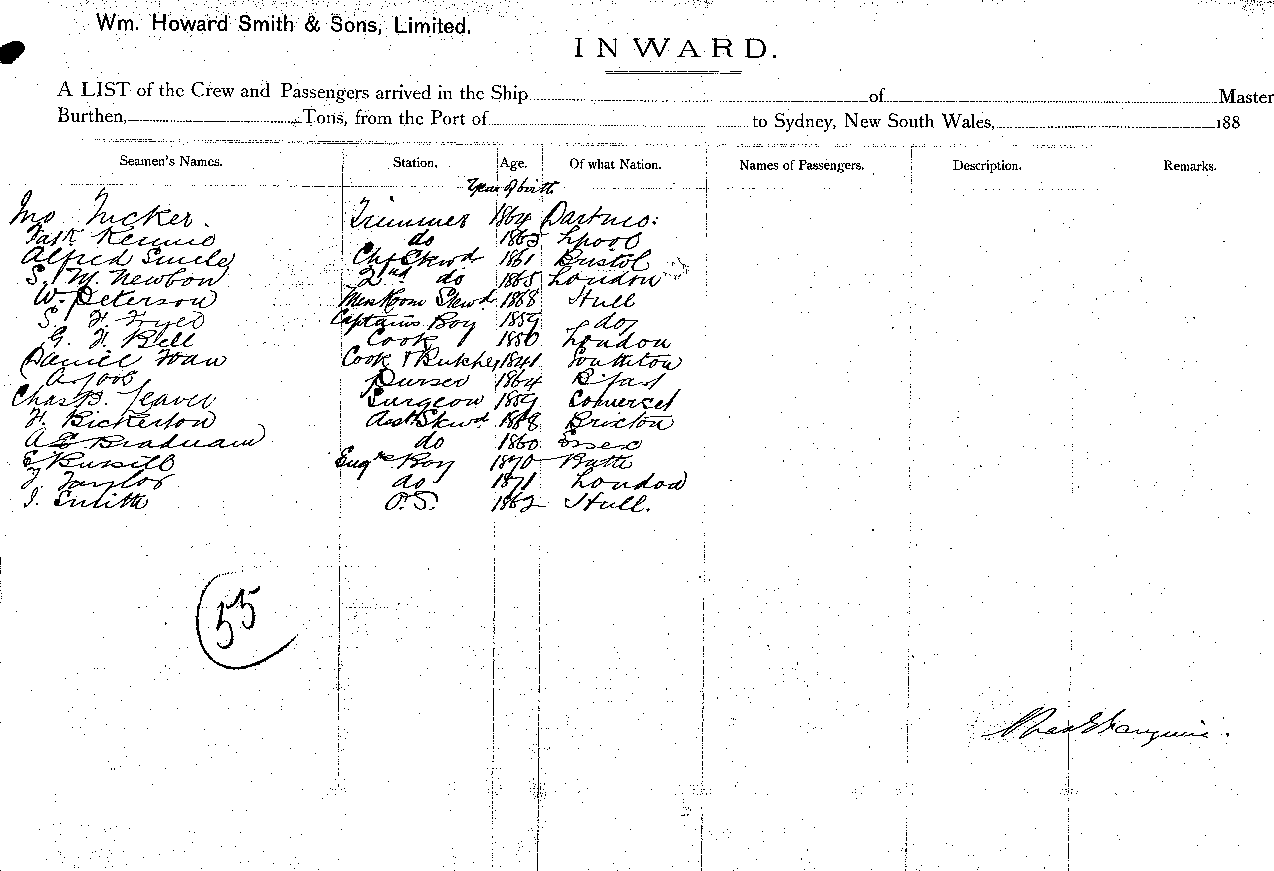 Wm. Howard Smith & Sons, Limited.
INWARD.
A LIST of the Crew and Passengers arrived in the Ship of Master
Burthen, Tons, from the Port of to Sydney, New South Wales, 188
Seamen's Names. Station. Age. Of what Nation. Names of Passengers. Description. Remarks.
Year of birth
Jno Tucker. Trimmer 1864 Dartmo:
do 1865 Lpool
Alfred Chf Stewd 1861 Bristol
S. M. Newbon 2nd do 1865 London
W. Peterson Mess Room Stewd 1868 Hull
S. H. Fryer Captains Boy 1859 do
G. H. Bell Cook 1856 London
Daniel Cook & Butcher 1841 Southton
Purser 1864 Bfast
Chas B. Surgeon 1859 Somerset
H. Bickerton Asst Stewd 1868 Brixton
A E Bradnam do 1860 Essex
E Russill Engrs Boy 1870 Bath
J. Taylor do 1871 London
J. Smith O.S. 1862 Hull.
55